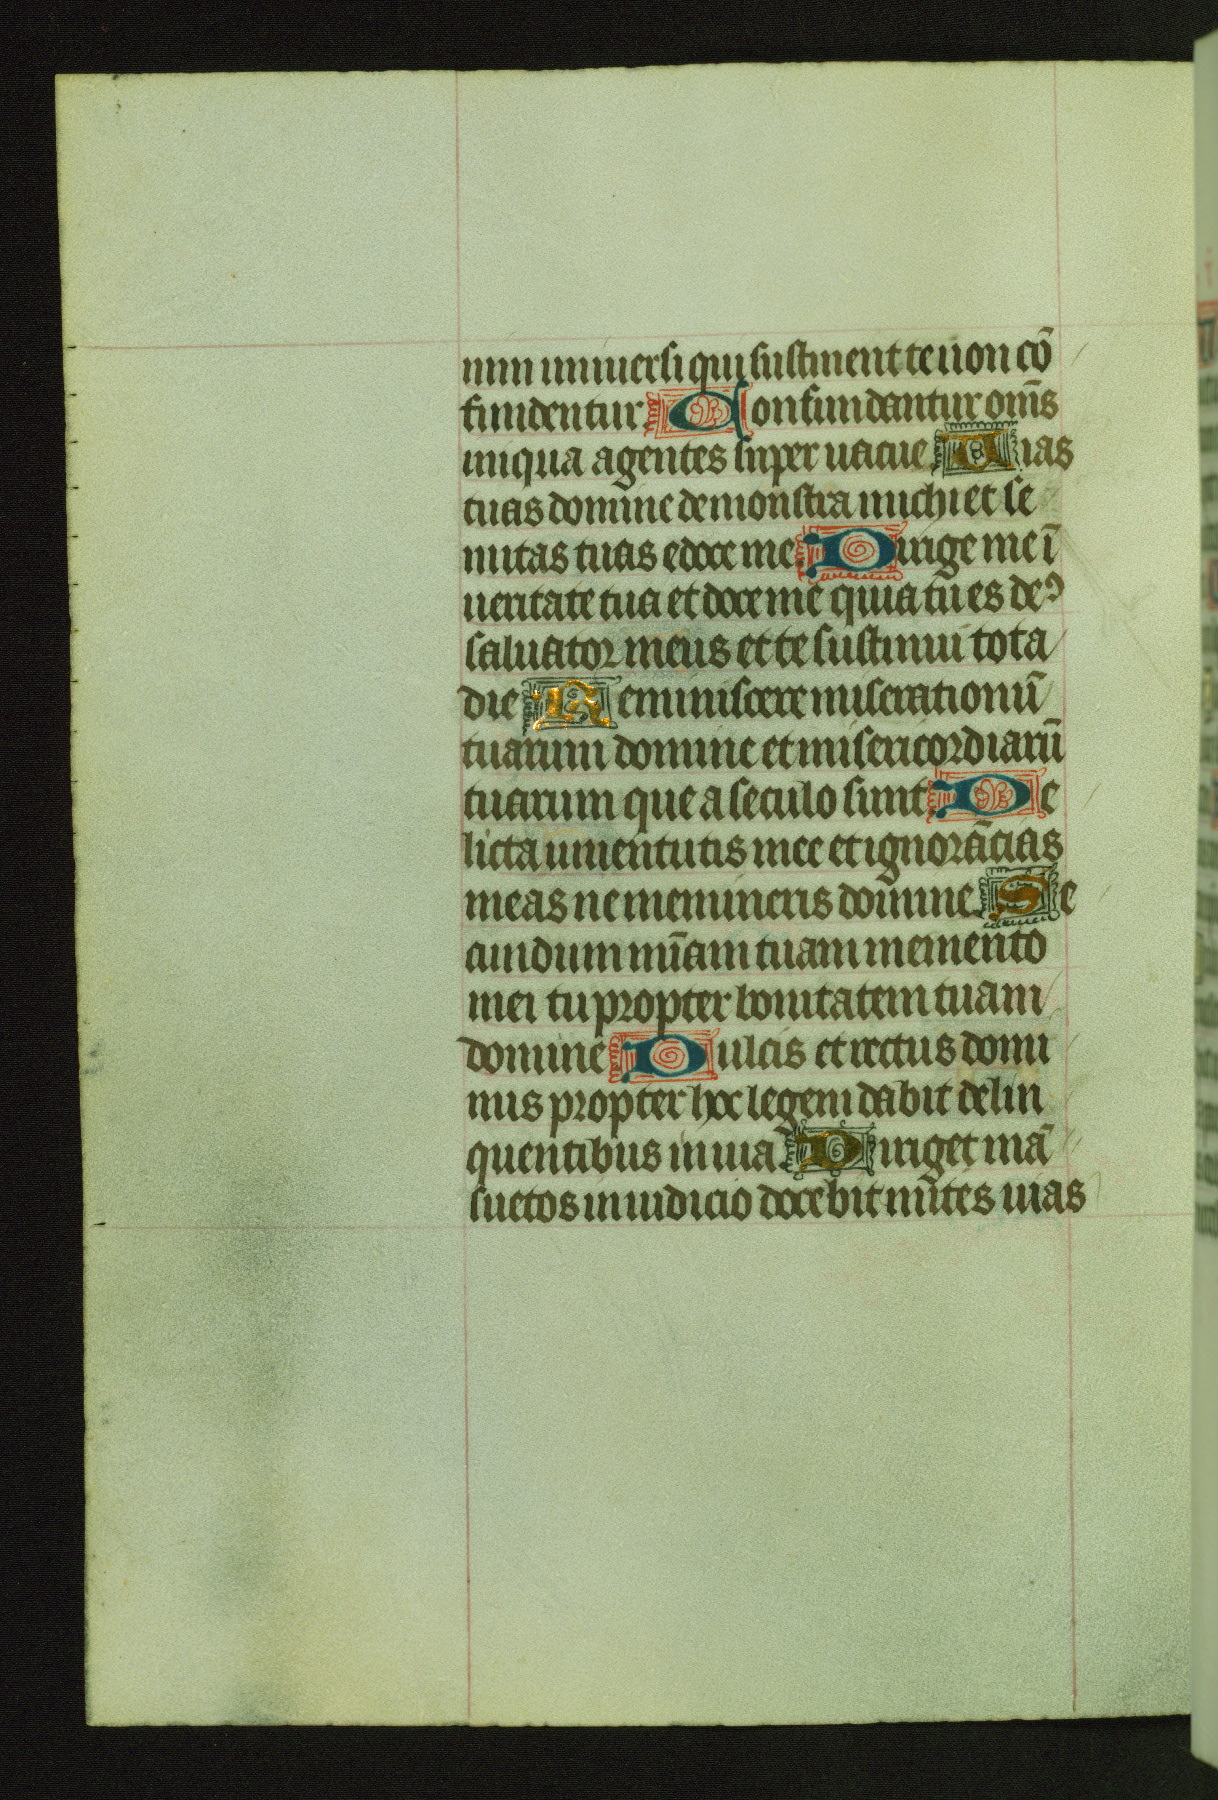 nim uniuersi qui sustinent te non cō
fundentur Confundantur om̄s
iniqua agentes super uacue Uias
tuas domine demonstra michi et se
mitas tuas edoce me Dirige me ī
ueritate tua et doce me quia tu es deꝰ
saluator meus et te sustinui tota
die Reminiscere miserationū
tuarum domine et misericordiarū
tuarum que a seculo sunt De
licta iuuentutis mee et ignorācias
meas ne memineris domine Se
cundum mīam tuam memento
mei tu propter bonitatem tuam
domine Dulcis et rectus domi
nus propter hoc legem dabit delin
quentibus in uia Diriget mā
suetos in iudicio docebit mītes uias